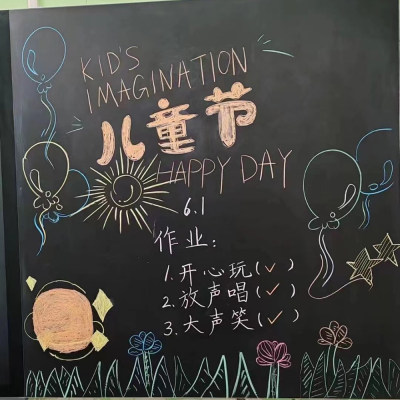 KID'S
IMAGINATION
儿童节
HAPPY DAY
6.1
作业:
1.开心玩(✓)
2.放声唱(✓)
3.大声笑(✓)